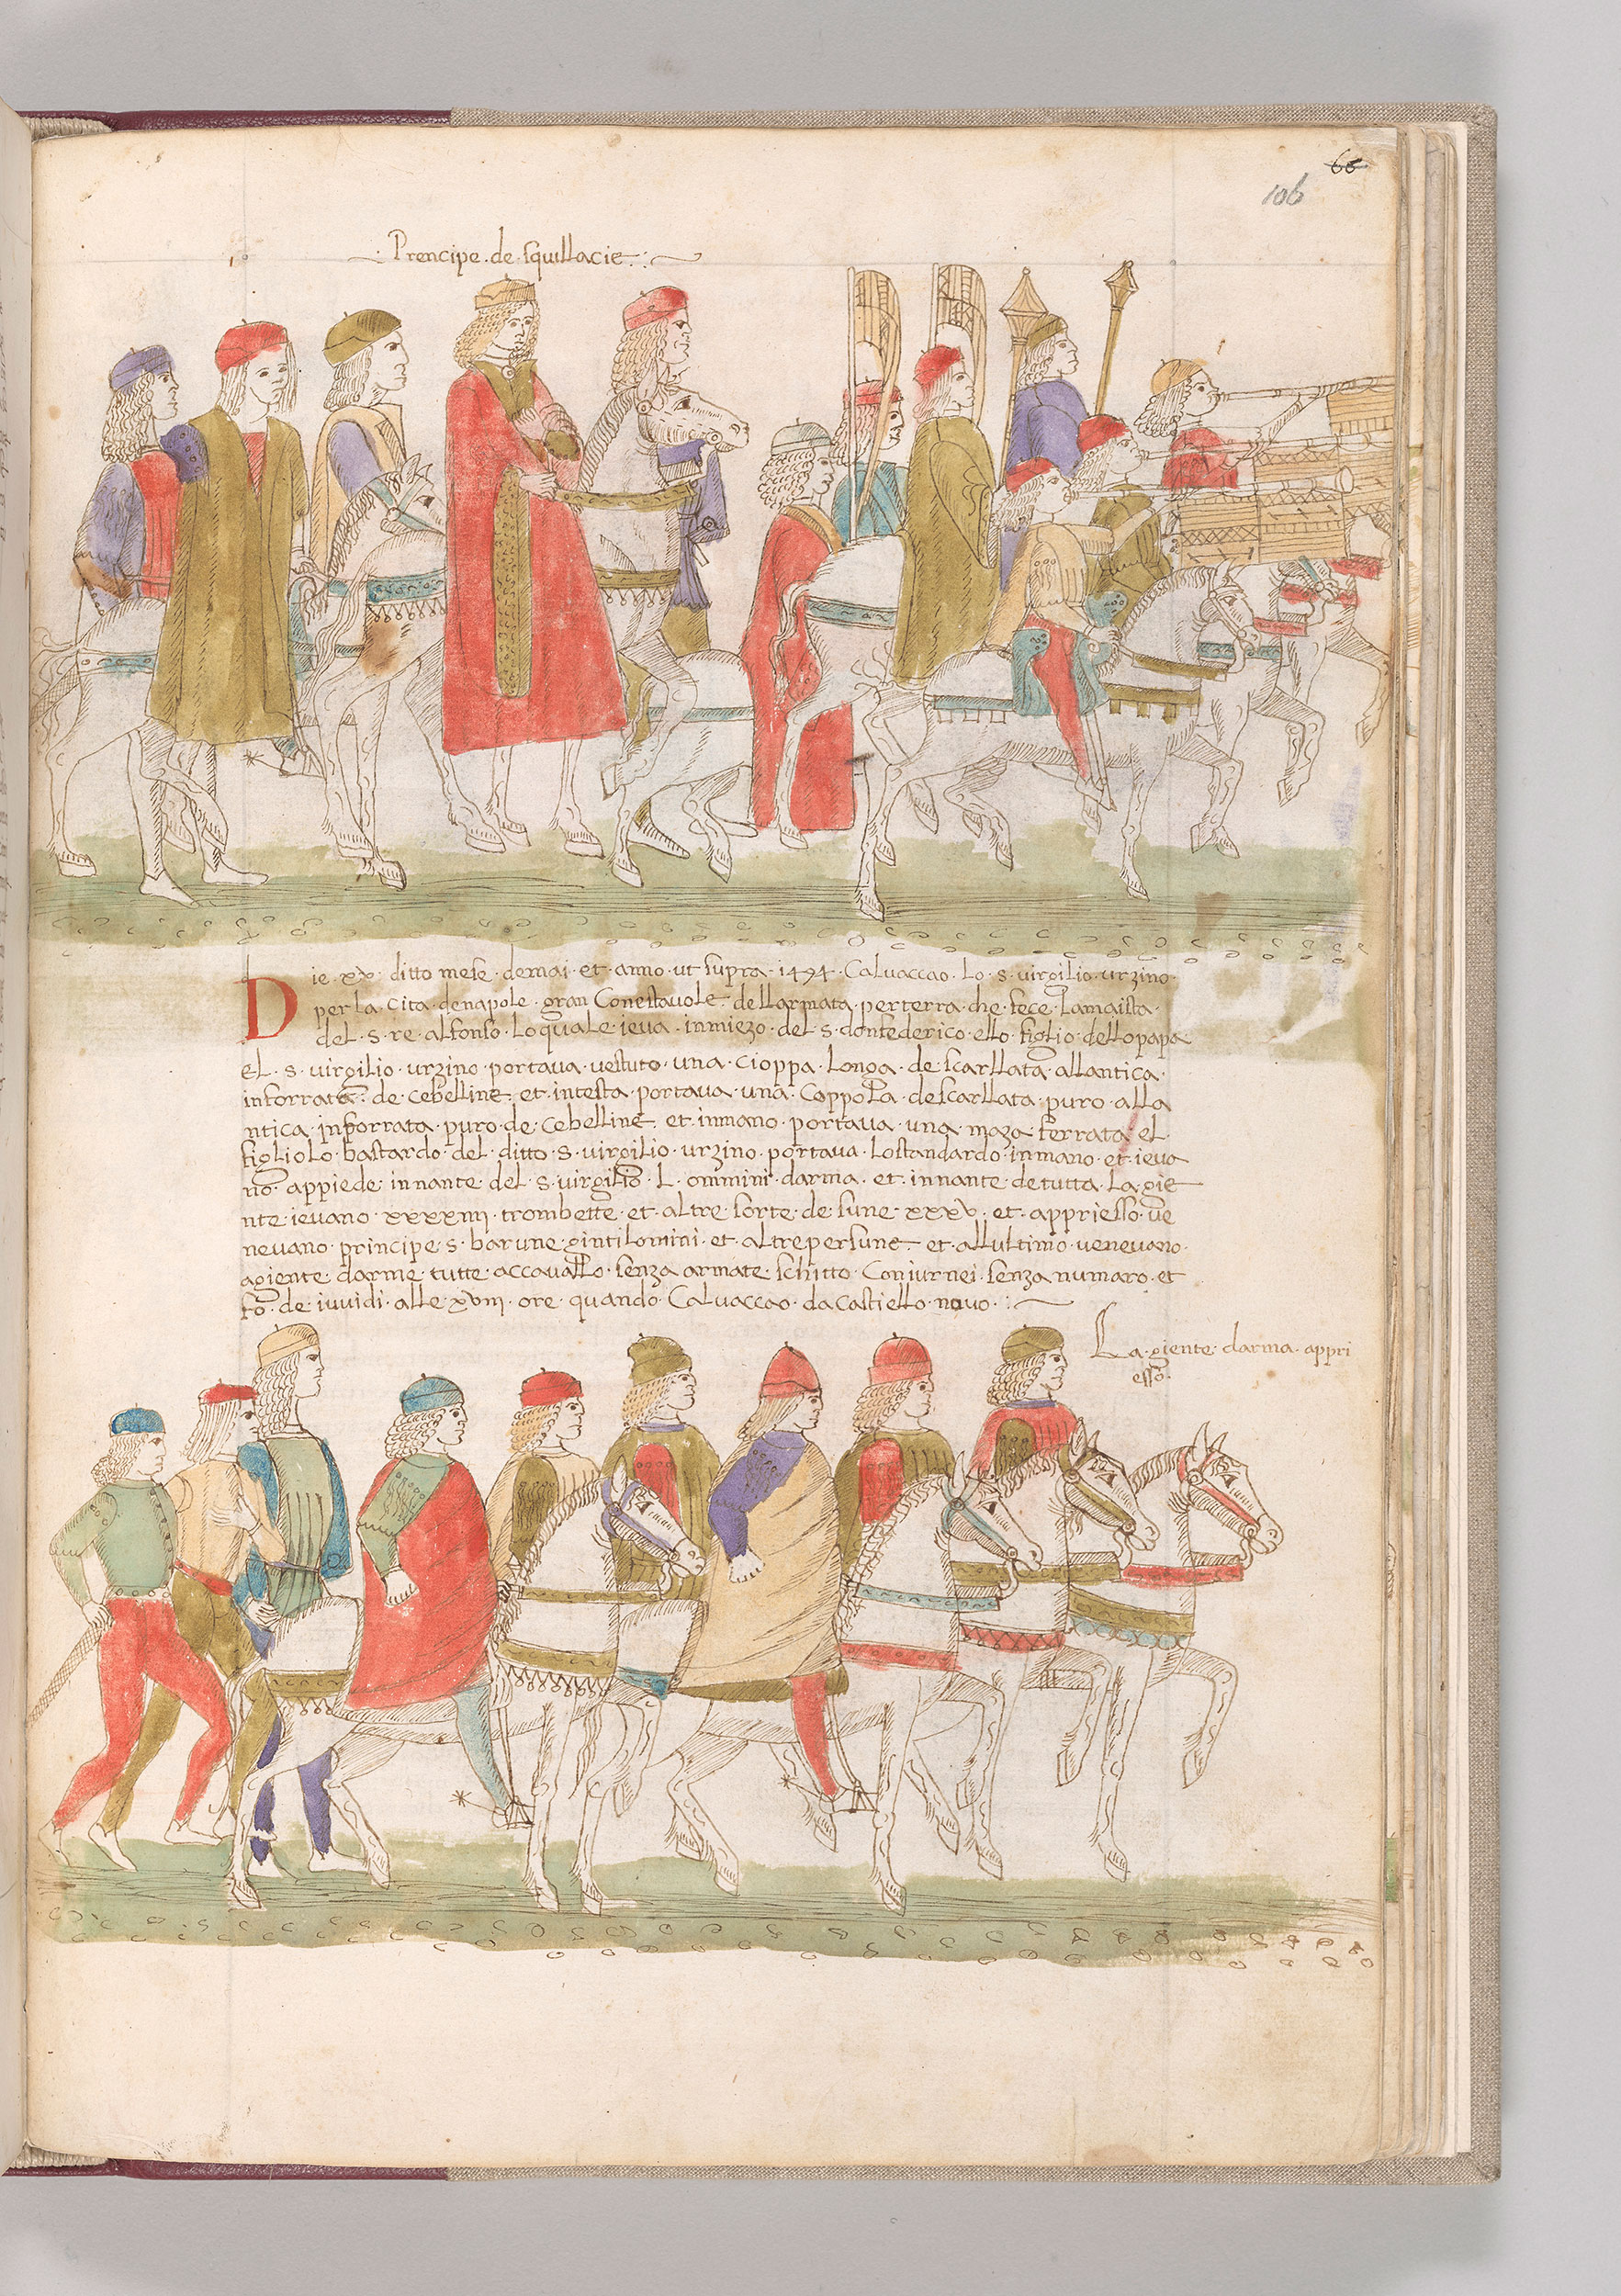 66
106
Prencipe · de · squillacie
Die · xx · ditto mese · demai · et · anno · ut supra · 1494 · Caluaccao · lo · s · virgilio · urzino ·
per la · cita · denapole · gran Conestauole · dellarmata · perterra · che · fece · lamaista ·
del · s · re · alfonso · loquale · ieua · inmiezo · del · s · donfederico · ello · figlio · dello papa
el · s · virgilio · urzino · portaua · vestuto · una · cioppa · longa · de scarllata · allantica ·
inforrata · de · cebelline · et · intesta · portaua · una · Coppola · descarllata · puro · alla
ntica · inforrata · puro · de · cebelline · et · inmano · portaua · una · maza · ferrata · el ·
figliolo · bastardo · del · ditto · s · virgilio · urzino · portaua · lostandardo · inmano · et · ieua
no · appiede · innante · del · s · virgilio · L · ommini · darma · et · innante · detutta · la · gie
nte ieuano · xxxxiiii · trombette · et · altre · sorte · de · sune · xxxv · et · appriesso · ve
neuano · principe · s · barune · gintilomini · et · altre persune · et · allultimo · veneuano ·
agiente · darme · tutte · accauallo · senza · armate · schitto · Coniurnei · senza numaro · et
fo · de iuuidi · alle · xviii · ore · quando · Caluaccao · da castiello · nouo ·
La · giente · darma · appri
esso ·